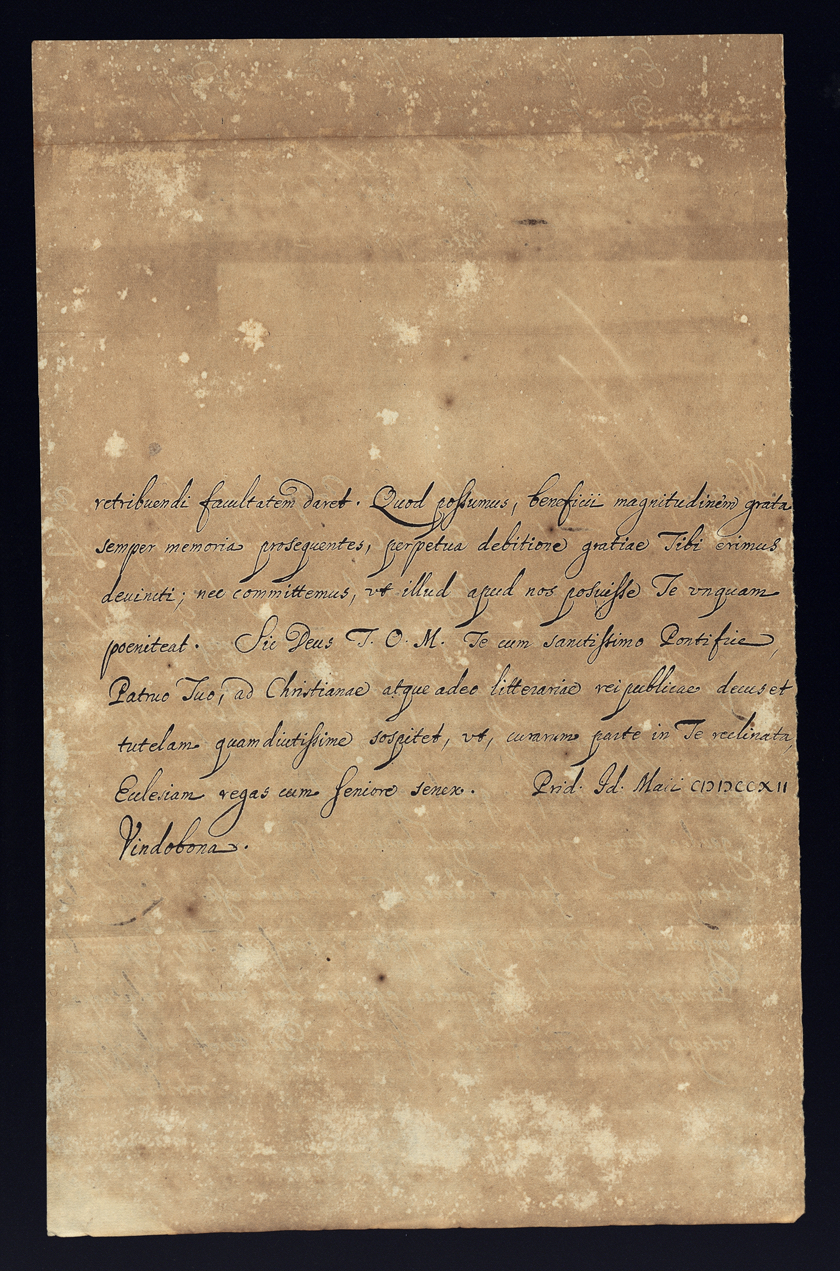 retribuendi facultatem daret. Quod possumus, beneficii magnitudinem grata
semper memoria prosequentes, perpetua debitione gratiae Tibi erimus
deuincti; nec committemus, vt illud apud nos posuisse Te vnquam
poeniteat. Sic Deus T. O. M. Te cum sanctissimo Pontifice,
Patruo Tuo, ad Christianae atque adeo litterariae reipublicae decus et
tutelam quamdiutissime sospitet, vt, curarum parte in Te reclinata,
Ecclesiam regas cum seniore senex. Prid. Id. Maii CIƆIƆCCXII
Vindobona.